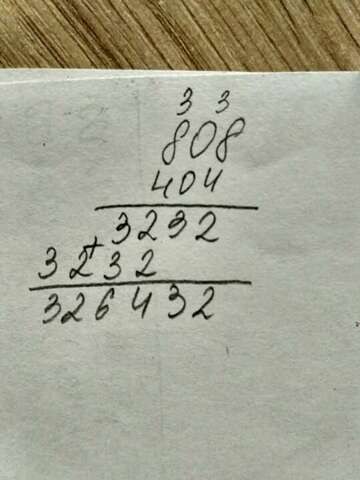 3 3
808
404
3232
+
3232
326432